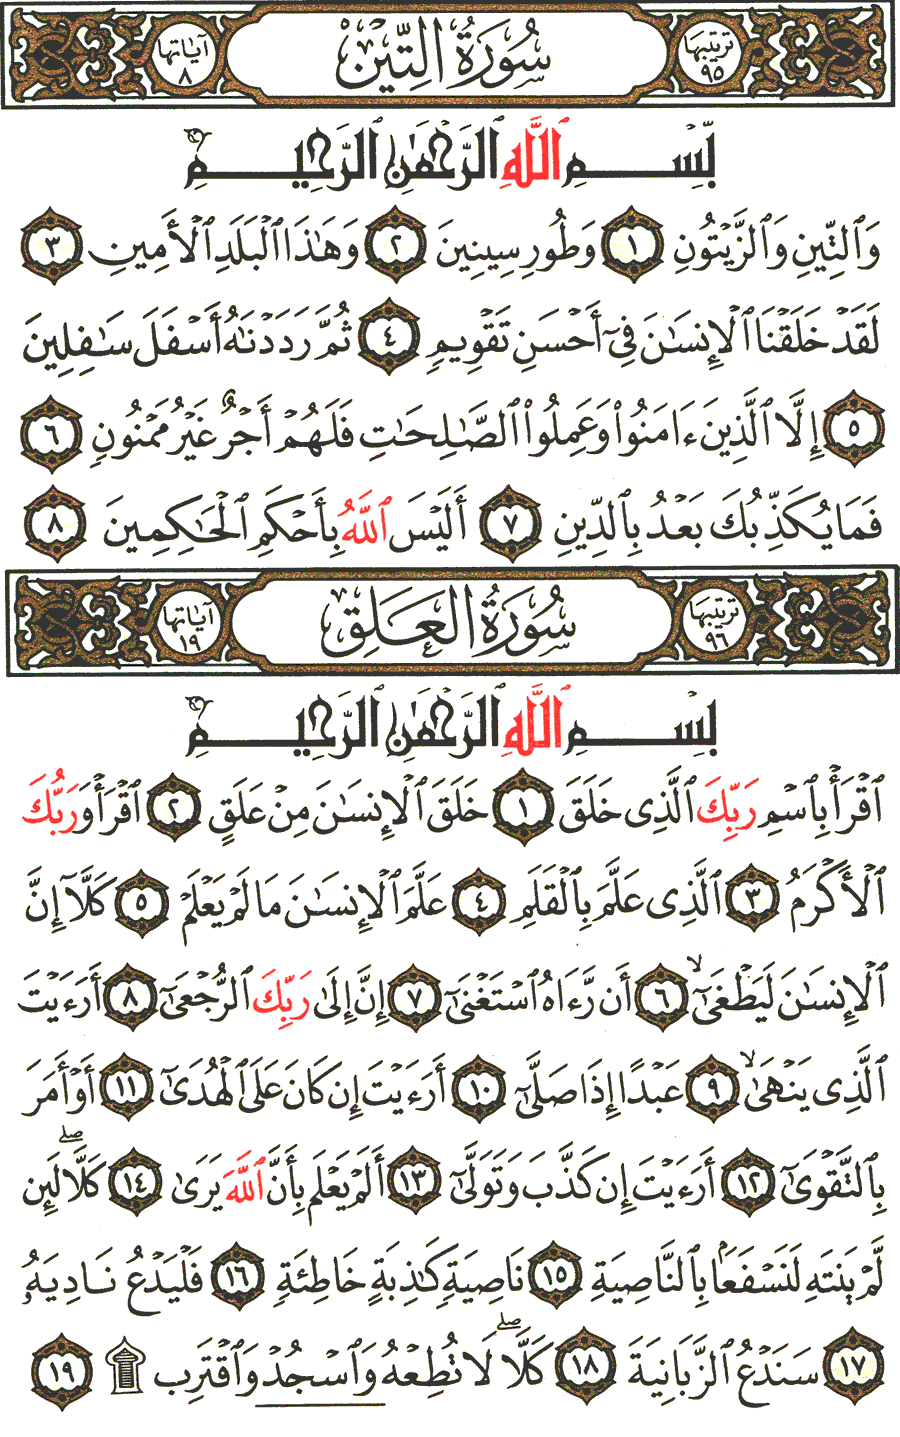 ترتيبها ٩٥ سُورَةُ التِّين آياتها ٨
بِّسۡمِ ٱللَّهِ ٱلرَّحۡمَٰنِ ٱلرَّحِيمِ
وَٱلتِّينِ وَٱلزَّيۡتُونِ ١ وَطُورِ سِينِينَ ٢ وَهَٰذَا ٱلۡبَلَدِ ٱلۡأَمِينِ ٣
لَقَدۡ خَلَقۡنَا ٱلۡإِنسَٰنَ فِيٓ أَحۡسَنِ تَقۡوِيمٖ ٤ ثُمَّ رَدَدۡنَٰهُ أَسۡفَلَ سَٰفِلِينَ
٥ إِلَّا ٱلَّذِينَ ءَامَنُواْ وَعَمِلُواْ ٱلصَّٰلِحَٰتِ فَلَهُمۡ أَجۡرٌ غَيۡرُ مَمۡنُونٖ ٦
فَمَا يُكَذِّبُكَ بَعۡدُ بِٱلدِّينِ ٧ أَلَيۡسَ ٱللَّهُ بِأَحۡكَمِ ٱلۡحَٰكِمِينَ ٨
ترتيبها ٩٦ سُورَةُ العَلَقِ آياتها ١٩
بِسۡمِ ٱللَّهِ ٱلرَّحۡمَٰنِ ٱلرَّحِيمِ
ٱقۡرَأۡ بِٱسۡمِ رَبِّكَ ٱلَّذِي خَلَقَ ١ خَلَقَ ٱلۡإِنسَٰنَ مِنۡ عَلَقٍ ٢ ٱقۡرَأۡ وَرَبُّكَ
ٱلۡأَكۡرَمُ ٣ ٱلَّذِي عَلَّمَ بِٱلۡقَلَمِ ٤ عَلَّمَ ٱلۡإِنسَٰنَ مَا لَمۡ يَعۡلَمۡ ٥ كَلَّآ إِنَّ
ٱلۡإِنسَٰنَ لَيَطۡغَىٰٓ ٦ أَن رَّءَاهُ ٱسۡتَغۡنَىٰٓ ٧ إِنَّ إِلَىٰ رَبِّكَ ٱلرُّجۡعَىٰٓ ٨ أَرَءَيۡتَ
ٱلَّذِي يَنۡهَىٰ ٩ عَبۡدًا إِذَا صَلَّىٰٓ ١٠ أَرَءَيۡتَ إِن كَانَ عَلَى ٱلۡهُدَىٰٓ ١١ أَوۡ أَمَرَ
بِٱلتَّقۡوَىٰٓ ١٢ أَرَءَيۡتَ إِن كَذَّبَ وَتَوَلَّىٰٓ ١٣ أَلَمۡ يَعۡلَم بِأَنَّ ٱللَّهَ يَرَىٰ ١٤ كَلَّاۖ لَئِن
لَّمۡ يَنتَهِ لَنَسۡفَعَۢا بِٱلنَّاصِيَةِ ١٥ نَاصِيَةٖ كَٰذِبَةٍ خَاطِئَةٖ ١٦ فَلۡيَدۡعُ نَادِيَهُۥ
١٧ سَنَدۡعُ ٱلزَّبَانِيَةَ ١٨ كَلَّاۖ لَا تُطِعۡهُ وَٱسۡجُدۡ وَٱقۡتَرِب ۩ ١٩